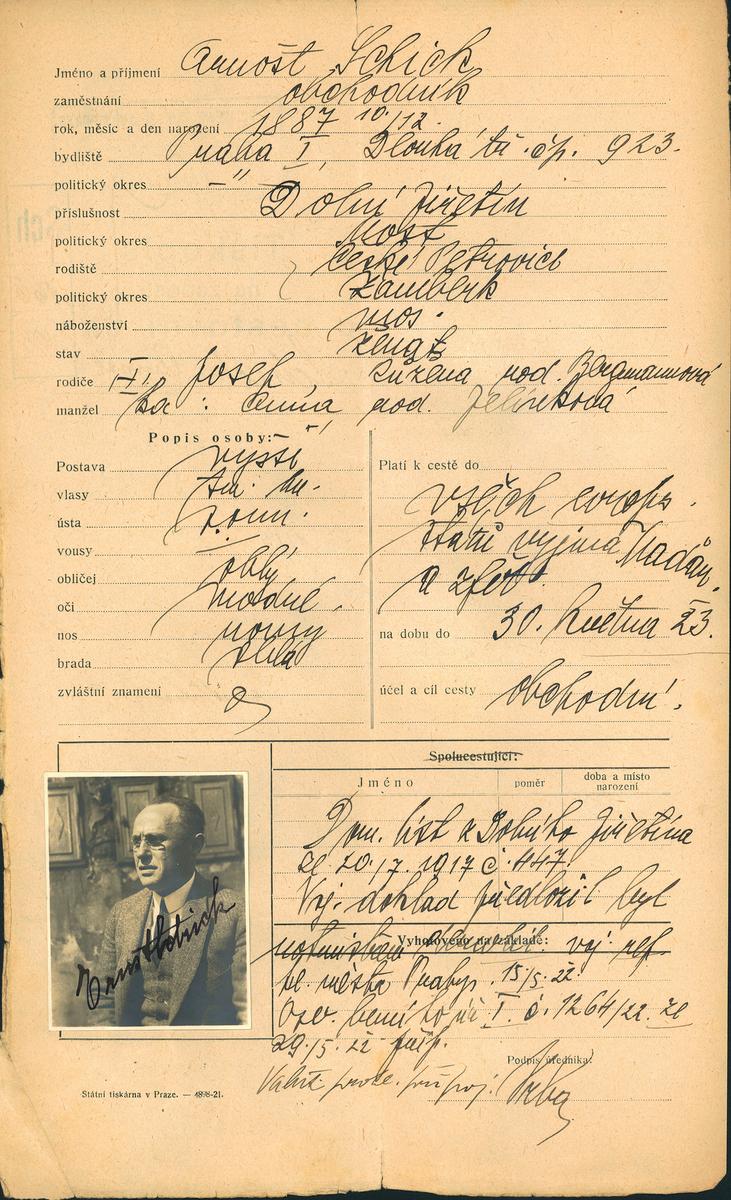 Jméno a příjmení Arnošt Schick
zaměstnání obchodník
rok, měsíc a den narození 1887 10/12.
bydliště Praha I, Dlouhá tř. čp. 923.
politický okres – " –
příslušnost Dolní Jiřetín
politický okres Most
rodiště České Petrovice
politický okres Žamberk
náboženství mos.
stav ženat
rodiče Josef, Růžena rod. Bergmannová
manžel ka: Anna rod. Jelínková
Popis osoby:
Postava vyšší
vlasy tm. hn.
ústa
vousy —
obličej oblý
oči modré
nos
brada oblá
zvláštní znamení
Platí k cestě do
všech evrops.
států vyjma Maďar.
a zpět
na dobu do 30. května 23.
účel a cíl cesty obchodní.
Spolucestující:
Jméno poměr doba a místo narození
Dom. list z Dolního Jiřetína
ze 20./7. 1917 č. 447.
Voj. doklad předložil byl
Vyhotoveno na základě:
voj. ref.
hl. města Prahy 15./5. 22
I. č. 1264/22 ze
29./5. 22
Podpis úředníka:
Ernst Schick
Státní tiskárna v Praze. — 1898-21.